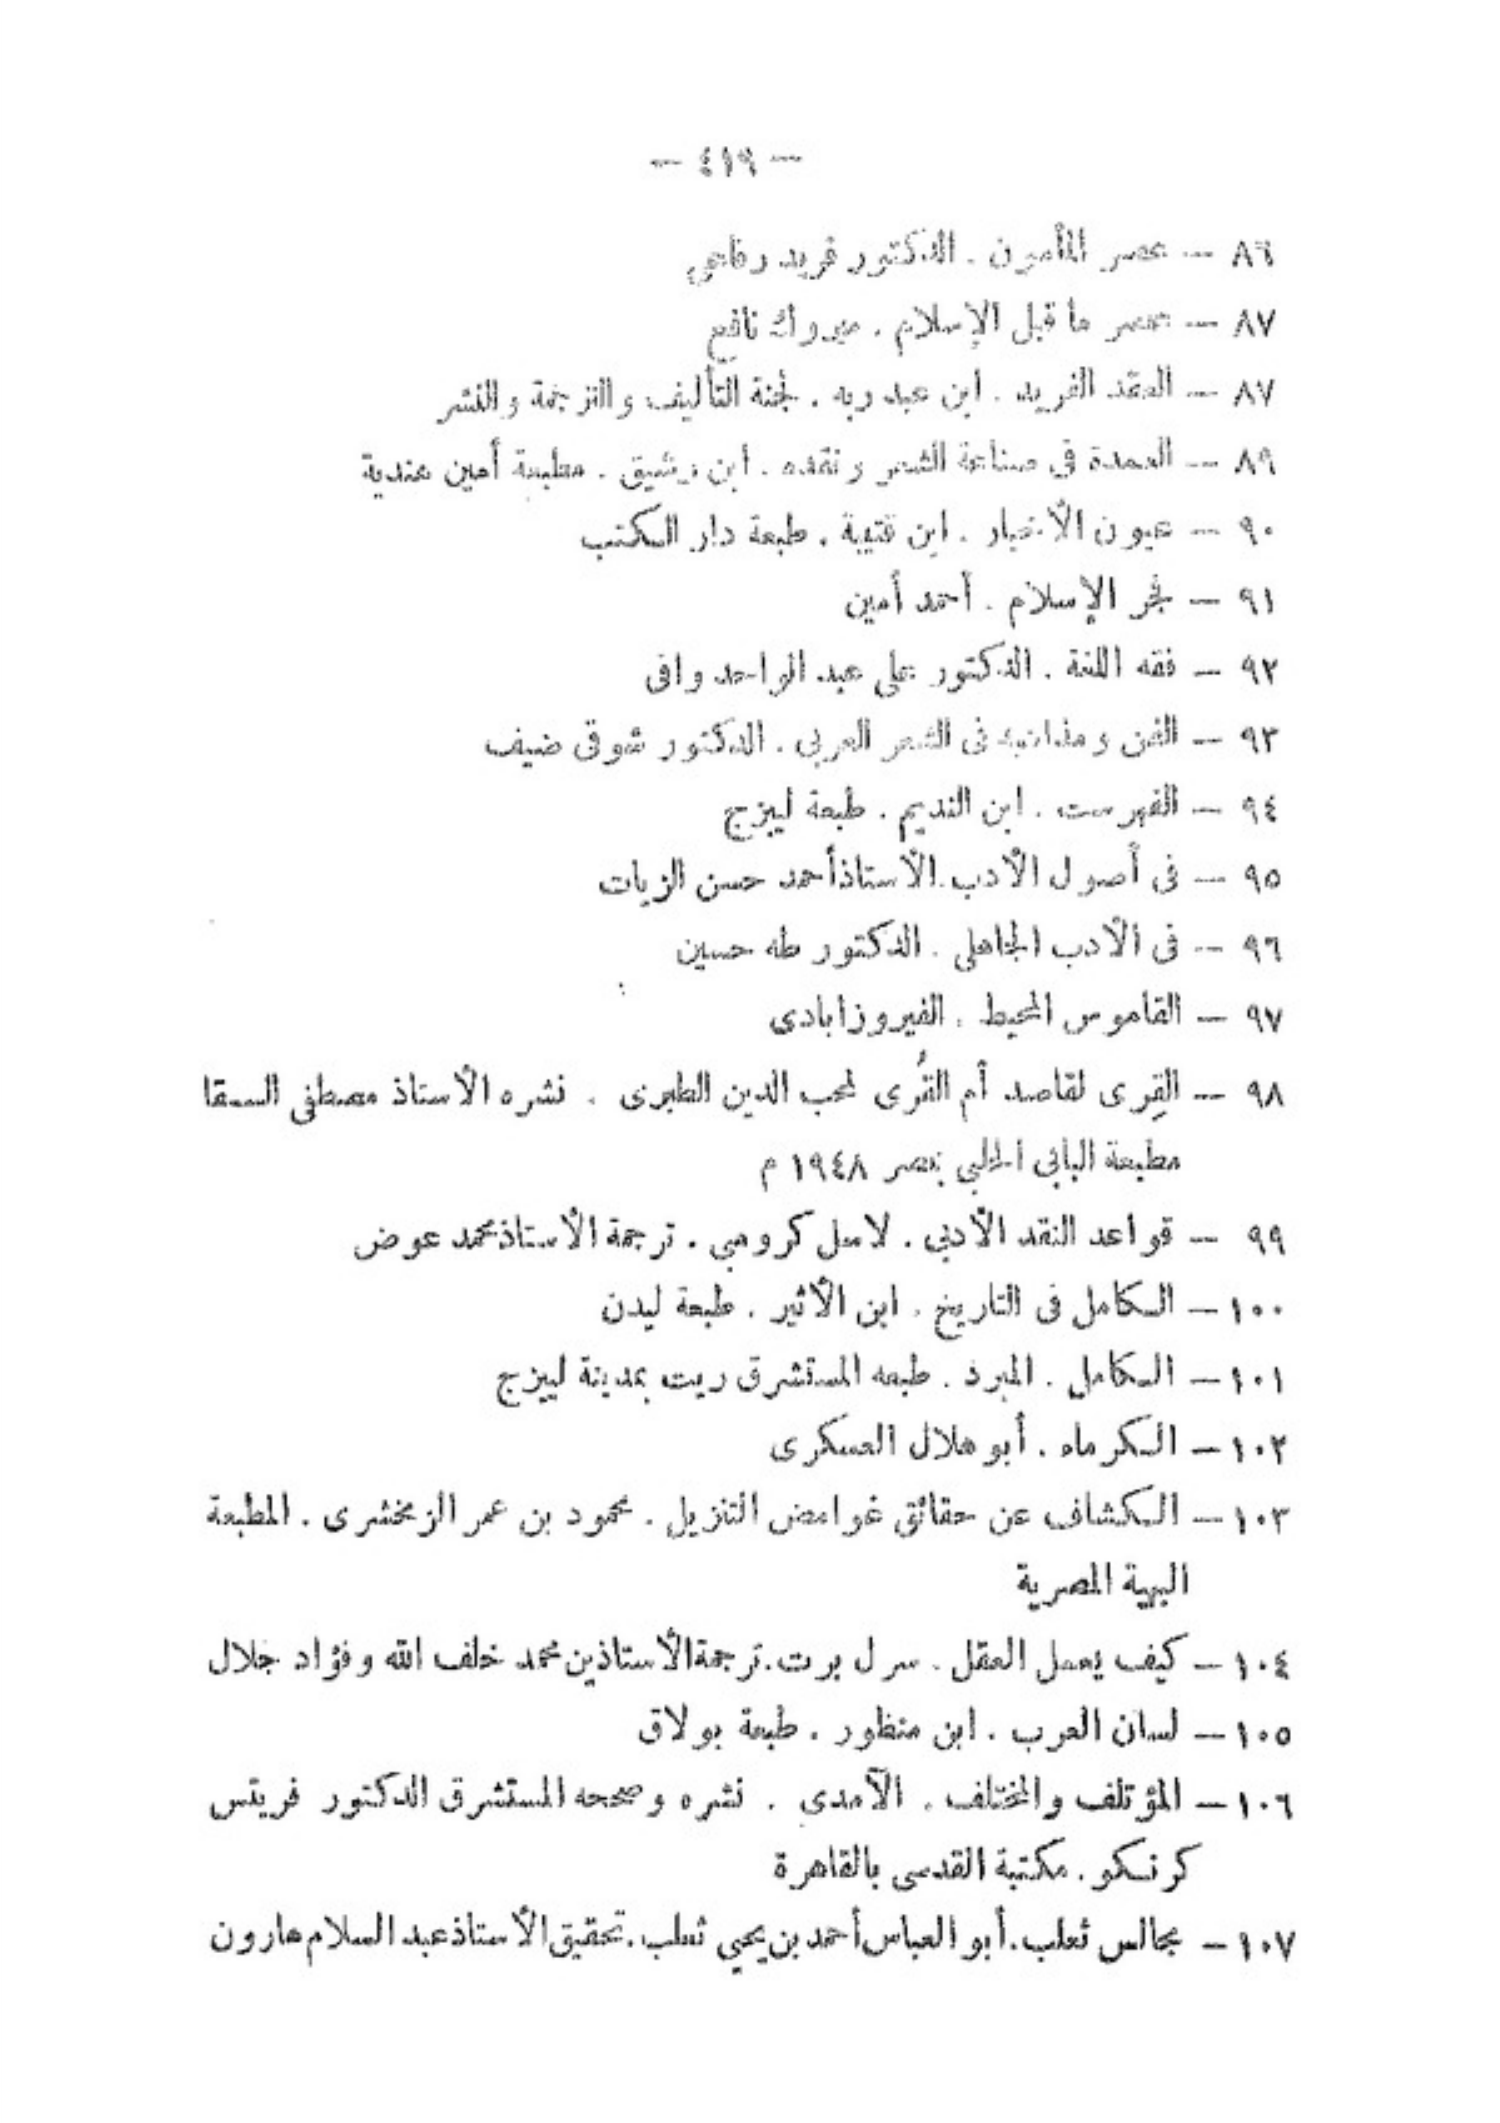 — ٤١٩ —
٨٦ — عصر المأمون . الدكتور فريد رفاعي
٨٧ — عصر ما قبل الإسلام . مبروك نافع
٨٧ — العقد الفريد . ابن عبد ربه . لجنة التأليف والترجمة والنشر
٨٩ — العمدة في صناعة الشعر ونقده . ابن رشيق . مطبعة أمين هندية
٩٠ — عيون الأخبار . ابن قتيبة . طبعة دار الكتب
٩١ — فجر الإسلام . أحمد أمين
٩٢ — فقه اللغة . الدكتور على عبد الواحد وافى
٩٣ — الفن ومذاهبه فى الشعر العربي . الدكتور شوقى ضيف
٩٤ — الفهرست . ابن النديم . طبعة ليبزج
٩٥ — فى أصول الأدب . الأستاذ أحمد حسن الزيات
٩٦ — فى الأدب الجاهلى . الدكتور طه حسين
٩٧ — القاموس المحيط . الفيروزابادى
٩٨ — القِرى لقاصد أم القُرى لمحب الدين الطبرى . نشره الأستاذ مصطفى السقا
مطبعة البابي الحلبي بمصر ١٩٤٨ م
٩٩ — قواعد النقد الأدبي . لاسل كرومبي . ترجمة الأستاذ محمد عوض
١٠٠ — الكامل فى التاريخ . ابن الأثير . طبعة ليدن
١٠١ — الكامل . المبرد . طبعه المستشرق ريت بمدينة ليبزج
١٠٢ — الكرماء . أبو هلال العسكرى
١٠٣ — الكشاف عن حقائق غوامض التنزيل . محمود بن عمر الزمخشرى . المطبعة
البهية المصرية
١٠٤ — كيف يعمل العقل . سرل برت . ترجمة الأستاذين محمد خلف الله وفؤاد جلال
١٠٥ — لسان العرب . ابن منظور . طبعة بولاق
١٠٦ — المؤتلف والمختلف . الآمدى . نشره وصححه المستشرق الدكتور فريتس
كرنسكو . مكتبة القدسى بالقاهرة
١٠٧ — مجالس ثعلب . أبو العباس أحمد بن يحيي ثعلب . تحقيق الأستاذ عبد السلام هارون